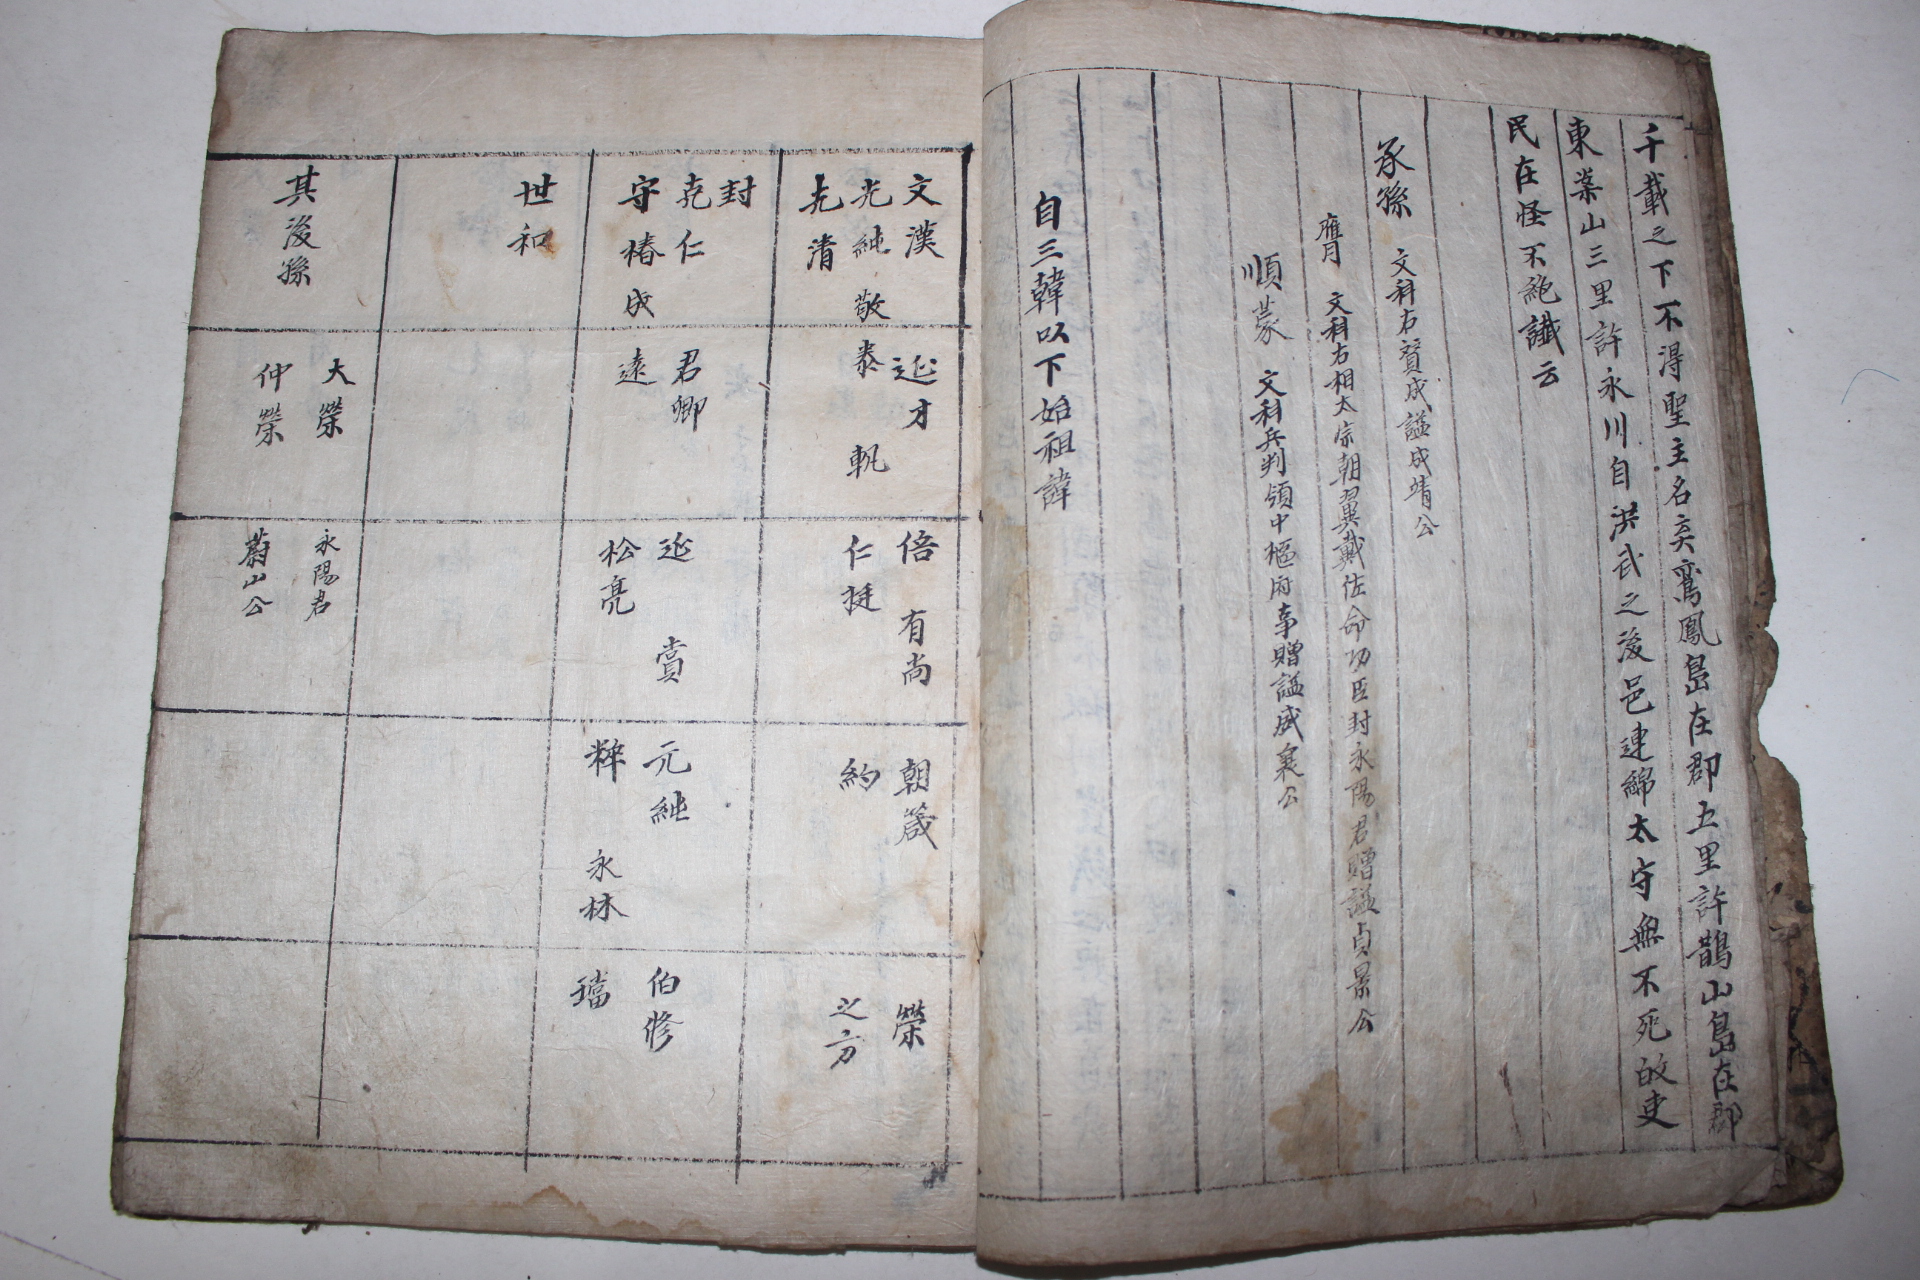 千載之下不得聖主名矣鸞鳳島在郡五里許鵲山島在郡
東山三里許永川自洪武之後邑連綿太守無不死故吏
民在怪不絶讖云
承孫 文科右賛成謚成靖公
膺 文科右相太宗朝翼戴佐命功臣封永陽君贈謚貞景公
順蒙 文科兵判領中樞府事贈謚威襄公
自三韓以下始祖諱
文漢
光純 敬
克清
封
克仁
守椿 成
世和
其後孫
延才
泰 軏
君卿
遠
大榮
仲榮
倍 有尚
仁挺
延 賞
松亮
永陽君
蔚山公
朝箴
約
元純
粹 永林
榮
之方
伯修
璫